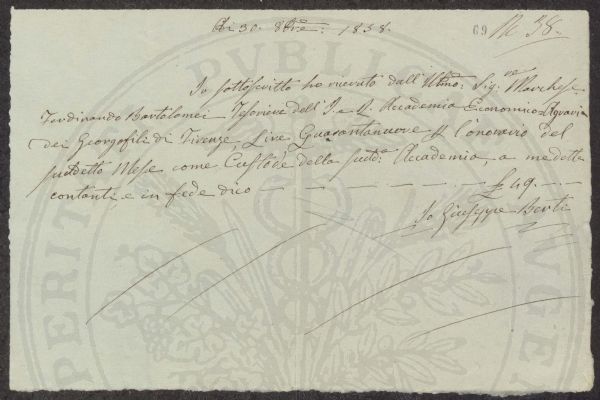 Di 30. 8bre: 1838.
69 N. 38.
Io sottoscritto ho ricevuto dall'Illmo: Sig:re Marchese
Ferdinando Bartolomei Tesoriere dell'I. e R. Accademia Economico-Agraria
dei Georgofili di Firenze, Lire Quarantanuove p. l'onorario del
suddetto Mese come Custode della sudd.a Accademia, a me detta
contanti e in fede dico — — — — — — £ 49. — —
Io Giuseppe Berti
PUBLICAE
PROSPERITATI
AUGENDAE